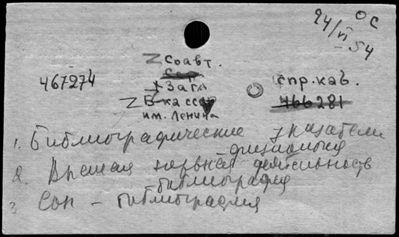 24/VI-54
ОС
Z Соавт.
467274
Загл
спр. каб.
Z В-ка ссср
им. Ленина
466281
1. Библиографические указатели
физиология
2. Высшая нервная деятельность
библиография
3 Соп - библиография